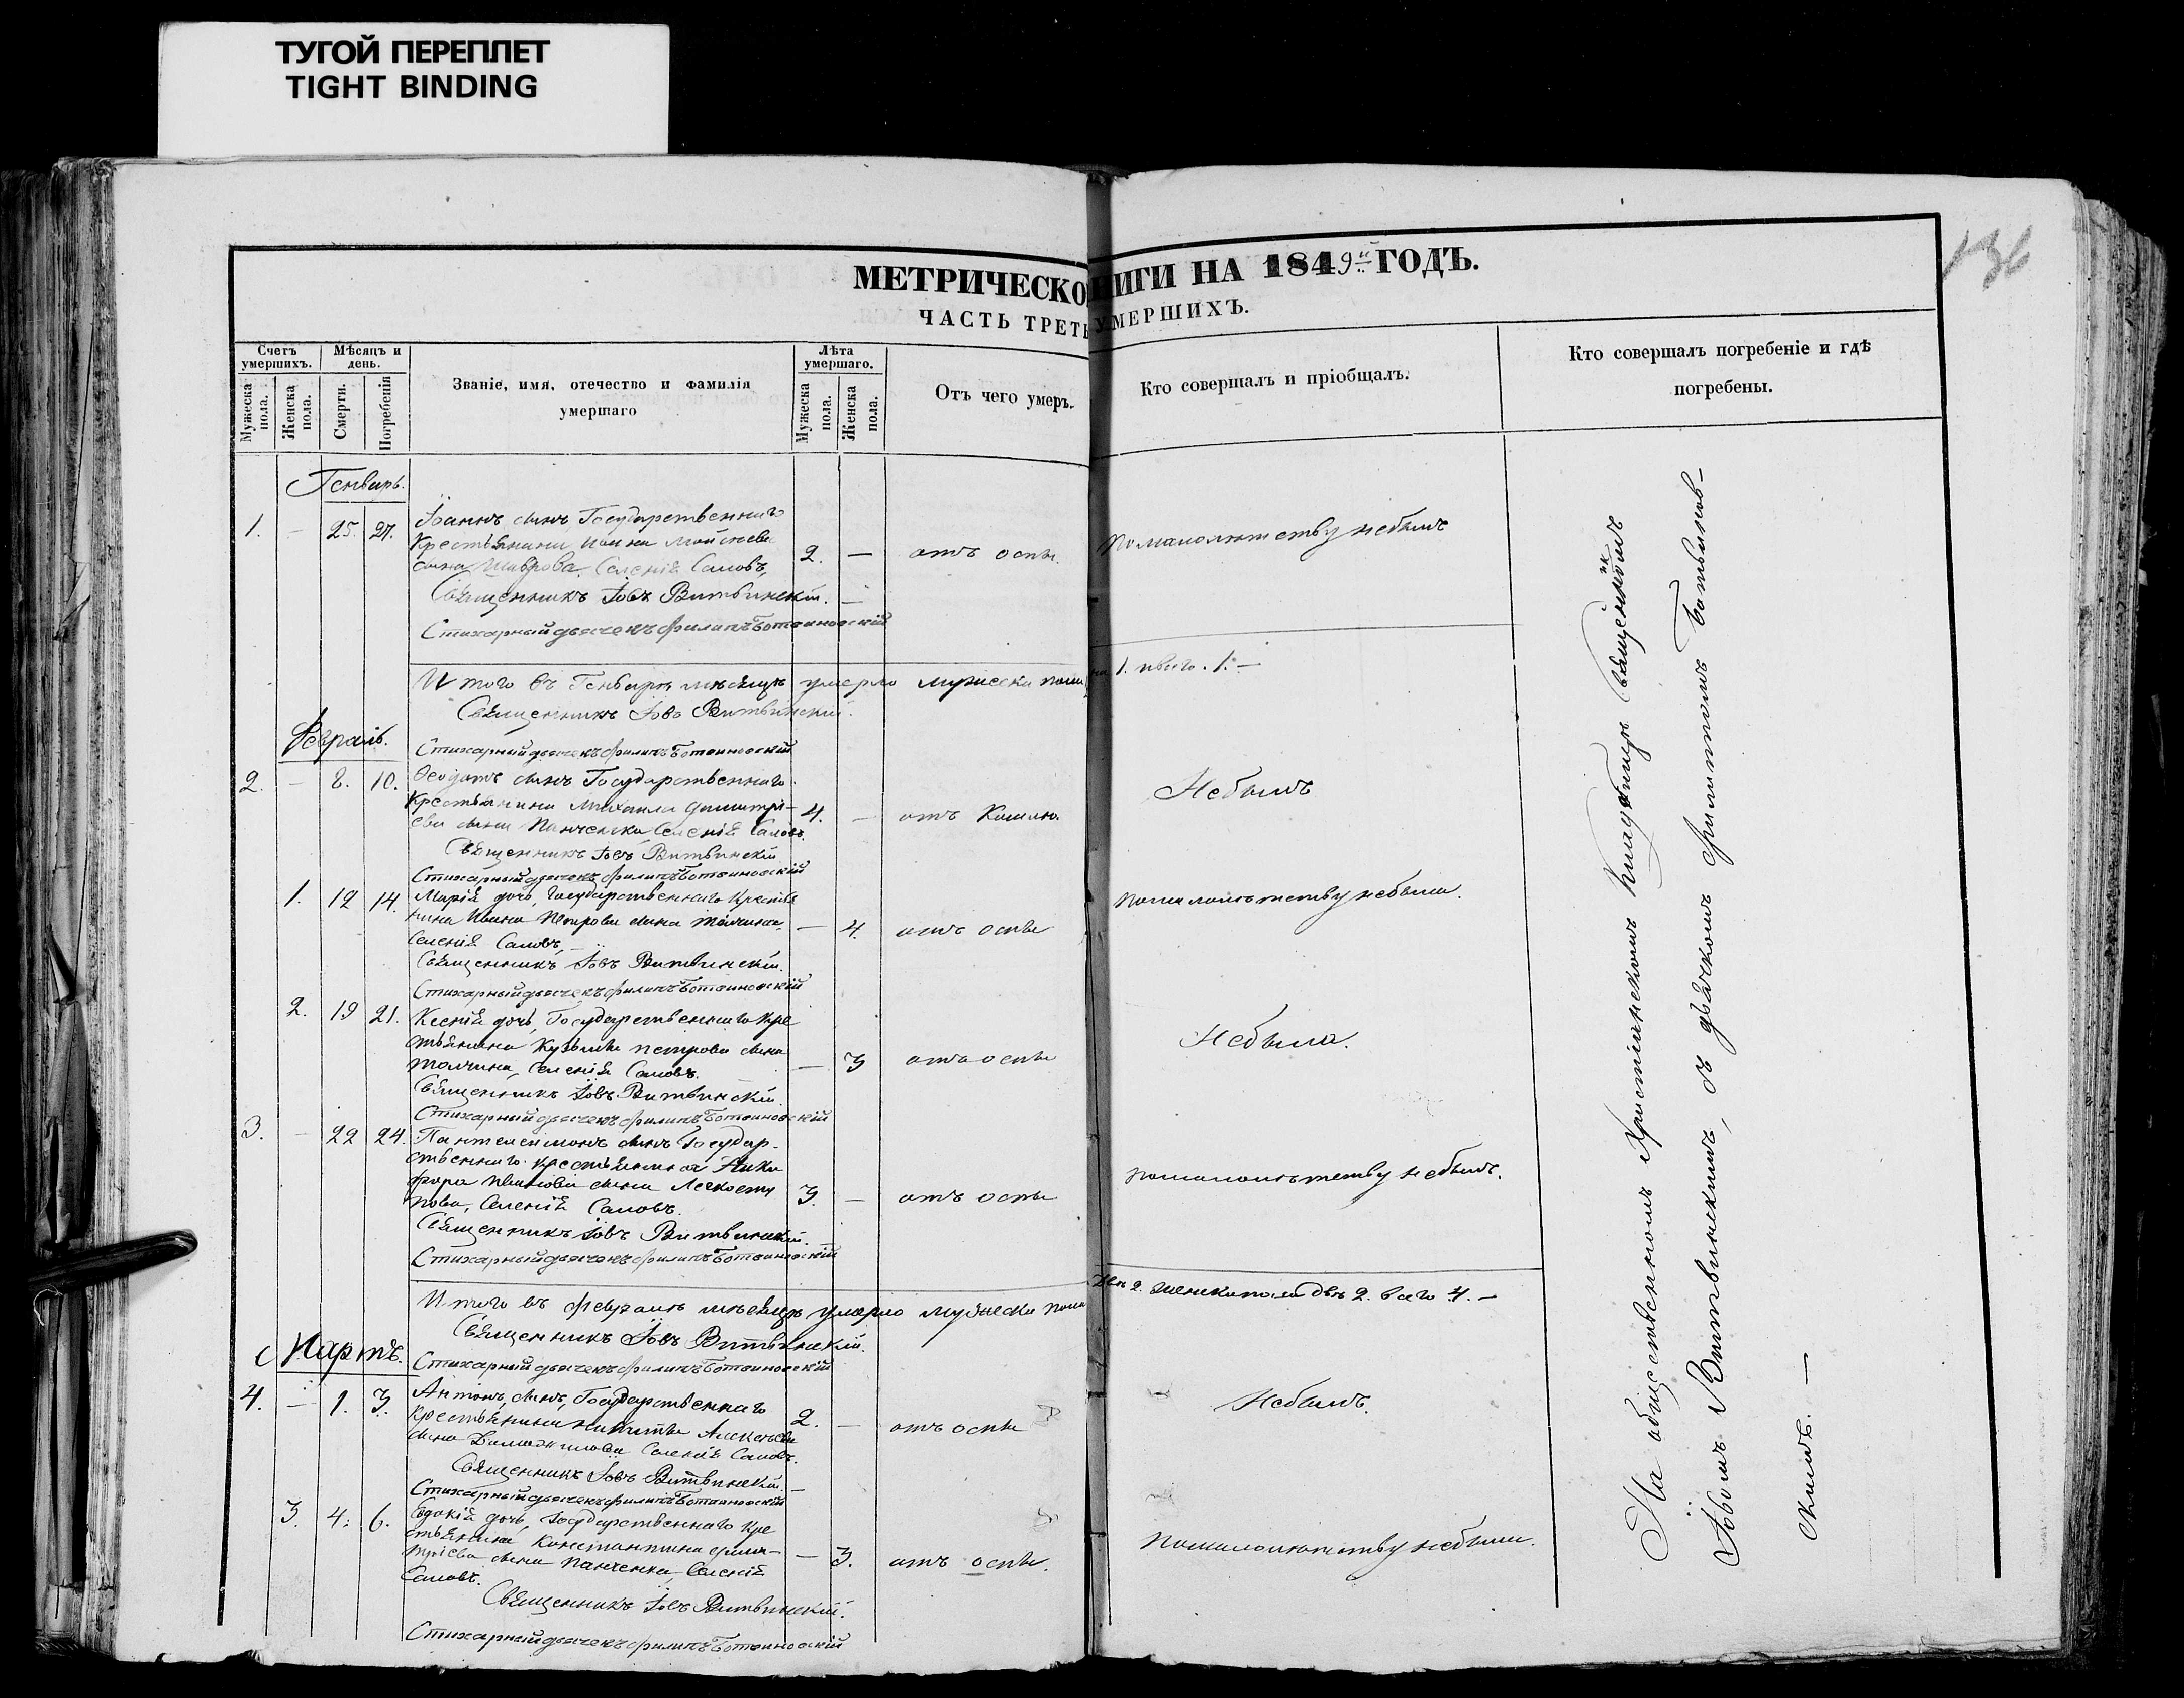 ТУГОЙ ПЕРЕПЛЕТ
TIGHT BINDING
136
МЕТРИЧЕСКО НИГИ НА 1849й ГОДЪ.
ЧАСТЬ ТРЕТЬ УМЕРШИХЪ.
Счетъ умершихъ.
Мужеска пола.
Женска пола.
Мѣсяцъ и день.
Смерти.
Погребенія
Званіе, имя, отечество и фамилія
умершаго
Лѣта умершаго.
Мужеска пола.
Женска пола.
Отъ чего умеръ.
Кто совершалъ и пріобщалъ.
Кто совершалъ погребеніе и гдѣ
погребены.
Генварь.
1. – 25. 27. Іоаннъ сынъ Государственнаго
Крестьянина Ивана Мойсеева
сына Шаврова Селенія Саловъ, 2. — отъ оспы. По малолѣтству небылъ
Священникъ Іовъ Витвинскій.
Стихарный дьячекъ Филипъ Ботвиновскій
Итого въ Генварѣ мѣсяцѣ умерло мужеска пола 1. всего. 1. —
Священникъ Іовъ Витвинскій.
Февраль.
Стихарный дьячекъ Филипъ Ботвиновскій
2. – 8. 10. Ѳеодотъ сынъ Государственнаго
Крестьянина Михаила Димитрі-
ева сына Панченка Селенія Саловъ. 4. – отъ Кашлю. Небылъ
Священникъ Іовъ Витвинскій
Стихарный дьячекъ Филипъ Ботвиновскій
1. 12 14. Марія дочь, Государственнаго Крестья
нина Ивана Петрова сына
Селенія Саловъ, — 4. отъ оспы По малолѣтству небыла.
Священникъ Іовъ Витвинскій.
Стихарный дьячекъ Филипъ Ботвиновскій
2. 19 21. Ксенія дочь, Государственнаго Кре
стьянина Кузьмы Петрова сына
Селенія Саловъ. — 3 отъ оспы Небыла.
Священникъ Іовъ Витвинскій.
Стихарный дьячекъ Филипъ Ботвиновскій
3. – 22 24. Пантелеимонъ сынъ Государ-
ственнаго крестьянина Ники
фора сына
Селенія Саловъ. 3. – отъ оспы По малолѣтству небылъ.
Священникъ Іовъ Витвинскій.
Стихарный дьячекъ Филипъ Ботвиновскій
Итого въ Февралѣ мѣсяцѣ умерло мужеска пола два 2. женска пола двѣ 2. всего 4. —
Священникъ Іовъ Витвинскій.
Мартъ.
Стихарный дьячекъ Филипъ Ботвиновскій
4. – 1. 3. Антонъ, сынъ, Государственнаго
Крестьянина Никиты Алексѣева
сына Селенія Саловъ. 2. – отъ оспы Небылъ.
Священникъ Іовъ Витвинскій. –
Стихарный дьячекъ Филипъ Ботвиновскій
3. 4. 6. Евдокія дочь, Государственнаго Кре
стьянина Константина Дими-
тріева сына Панченка, Селенія
Саловъ. — 3. отъ оспы. По малолѣтству небыла.
Священникъ Іовъ Витвинскій.
Стихарный дьячекъ Филипъ Ботвиновскій
На общественномъ Христіянскомъ Кладбищѣ Священникомъ
Іовомъ Витвинскимъ, съ дьячкомъ Филиппомъ Ботвинов-
скимъ. —